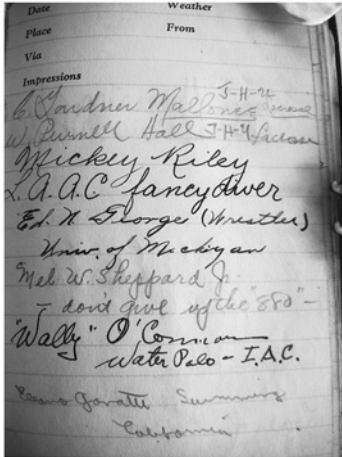 Date Weather
Place From
Via
Impressions
C. Gardner Mallonee J-H-U Lacrosse
W. Purnell Hall J-H-U Lacrosse
Mickey Riley
L.A.A.C fancy diver
Ed. N George (Wrestler)
Univ. of Michigan
Mel. W. Sheppard Jr.
— don't give up the "880" —
"Wally" O'Connor
Water Polo - I.A.C.
Garatti Swimming
California